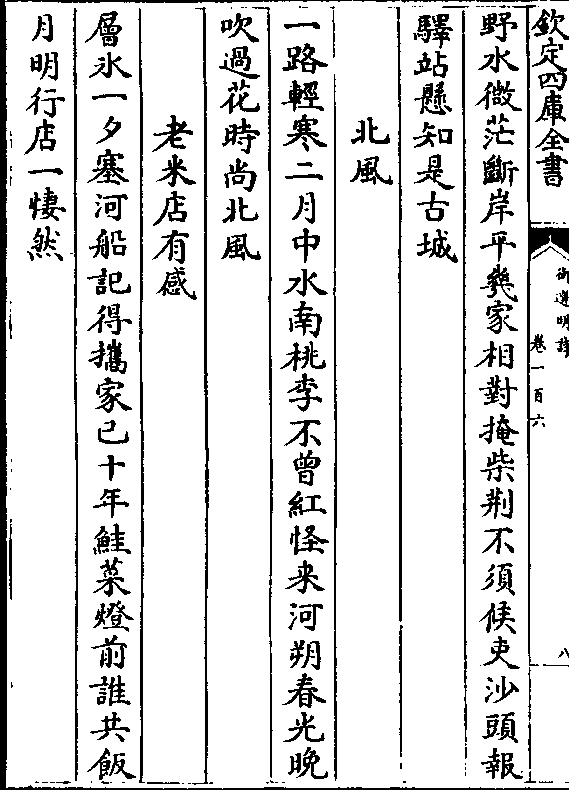 欽定四庫全書
御選明詩
卷一百六
八
野水微茫斷岸平幾家相對掩柴荆不須候吏沙頭報
驛站懸知是古城
北風
一路輕寒二月中水南桃李不曾紅怪来河朔春光晚
吹過花時尚北風
老米店有感
層氷一夕塞河船記得攜家已十年鮭菜燈前誰共飯
月明行店一悽然